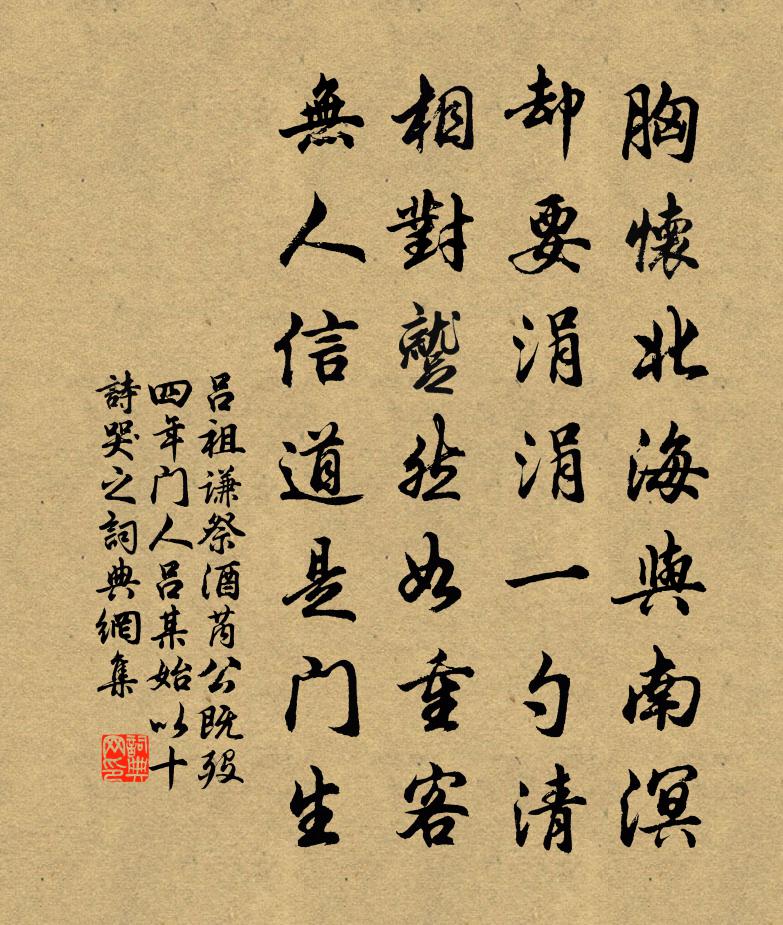 胸懷北海與南溟
却要涓涓一勺清
相對蹵然如重客
無人信道是门生
呂祖谦祭酒芮公既殁
四年门人呂某始以十
詩哭之詞典網集
詞典网印